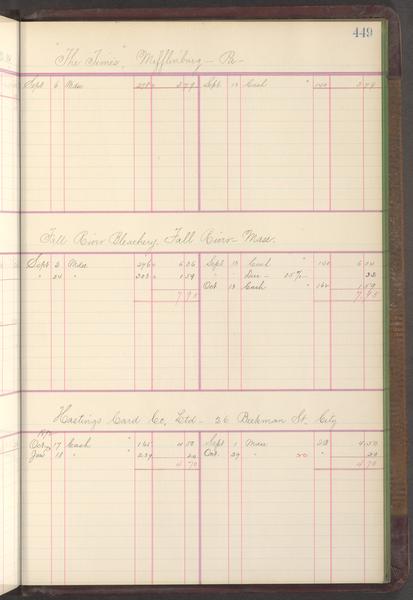 449
"The Times", Mifflinburg - Pa -
Sept 6 Mdse 2 79 Sept 13 Cash " 140 2 79
Fall River Bleachery, Fall River - Mass.
Sept 2 Mdse 6 36 Sept 13 Cash " 140 6 04
" 24 " 1 59 " " Disc - 32
7 95 Oct 13 Cash " 162 1 59
7 95
Hastings Card Co, Ltd - 26 Beekman St. City
Oct 17 Cash " 165 4 50 Sept 1 Mdse 4 50
Jan 18 " " 239 20 Oct 29 " 20
4 70 4 70